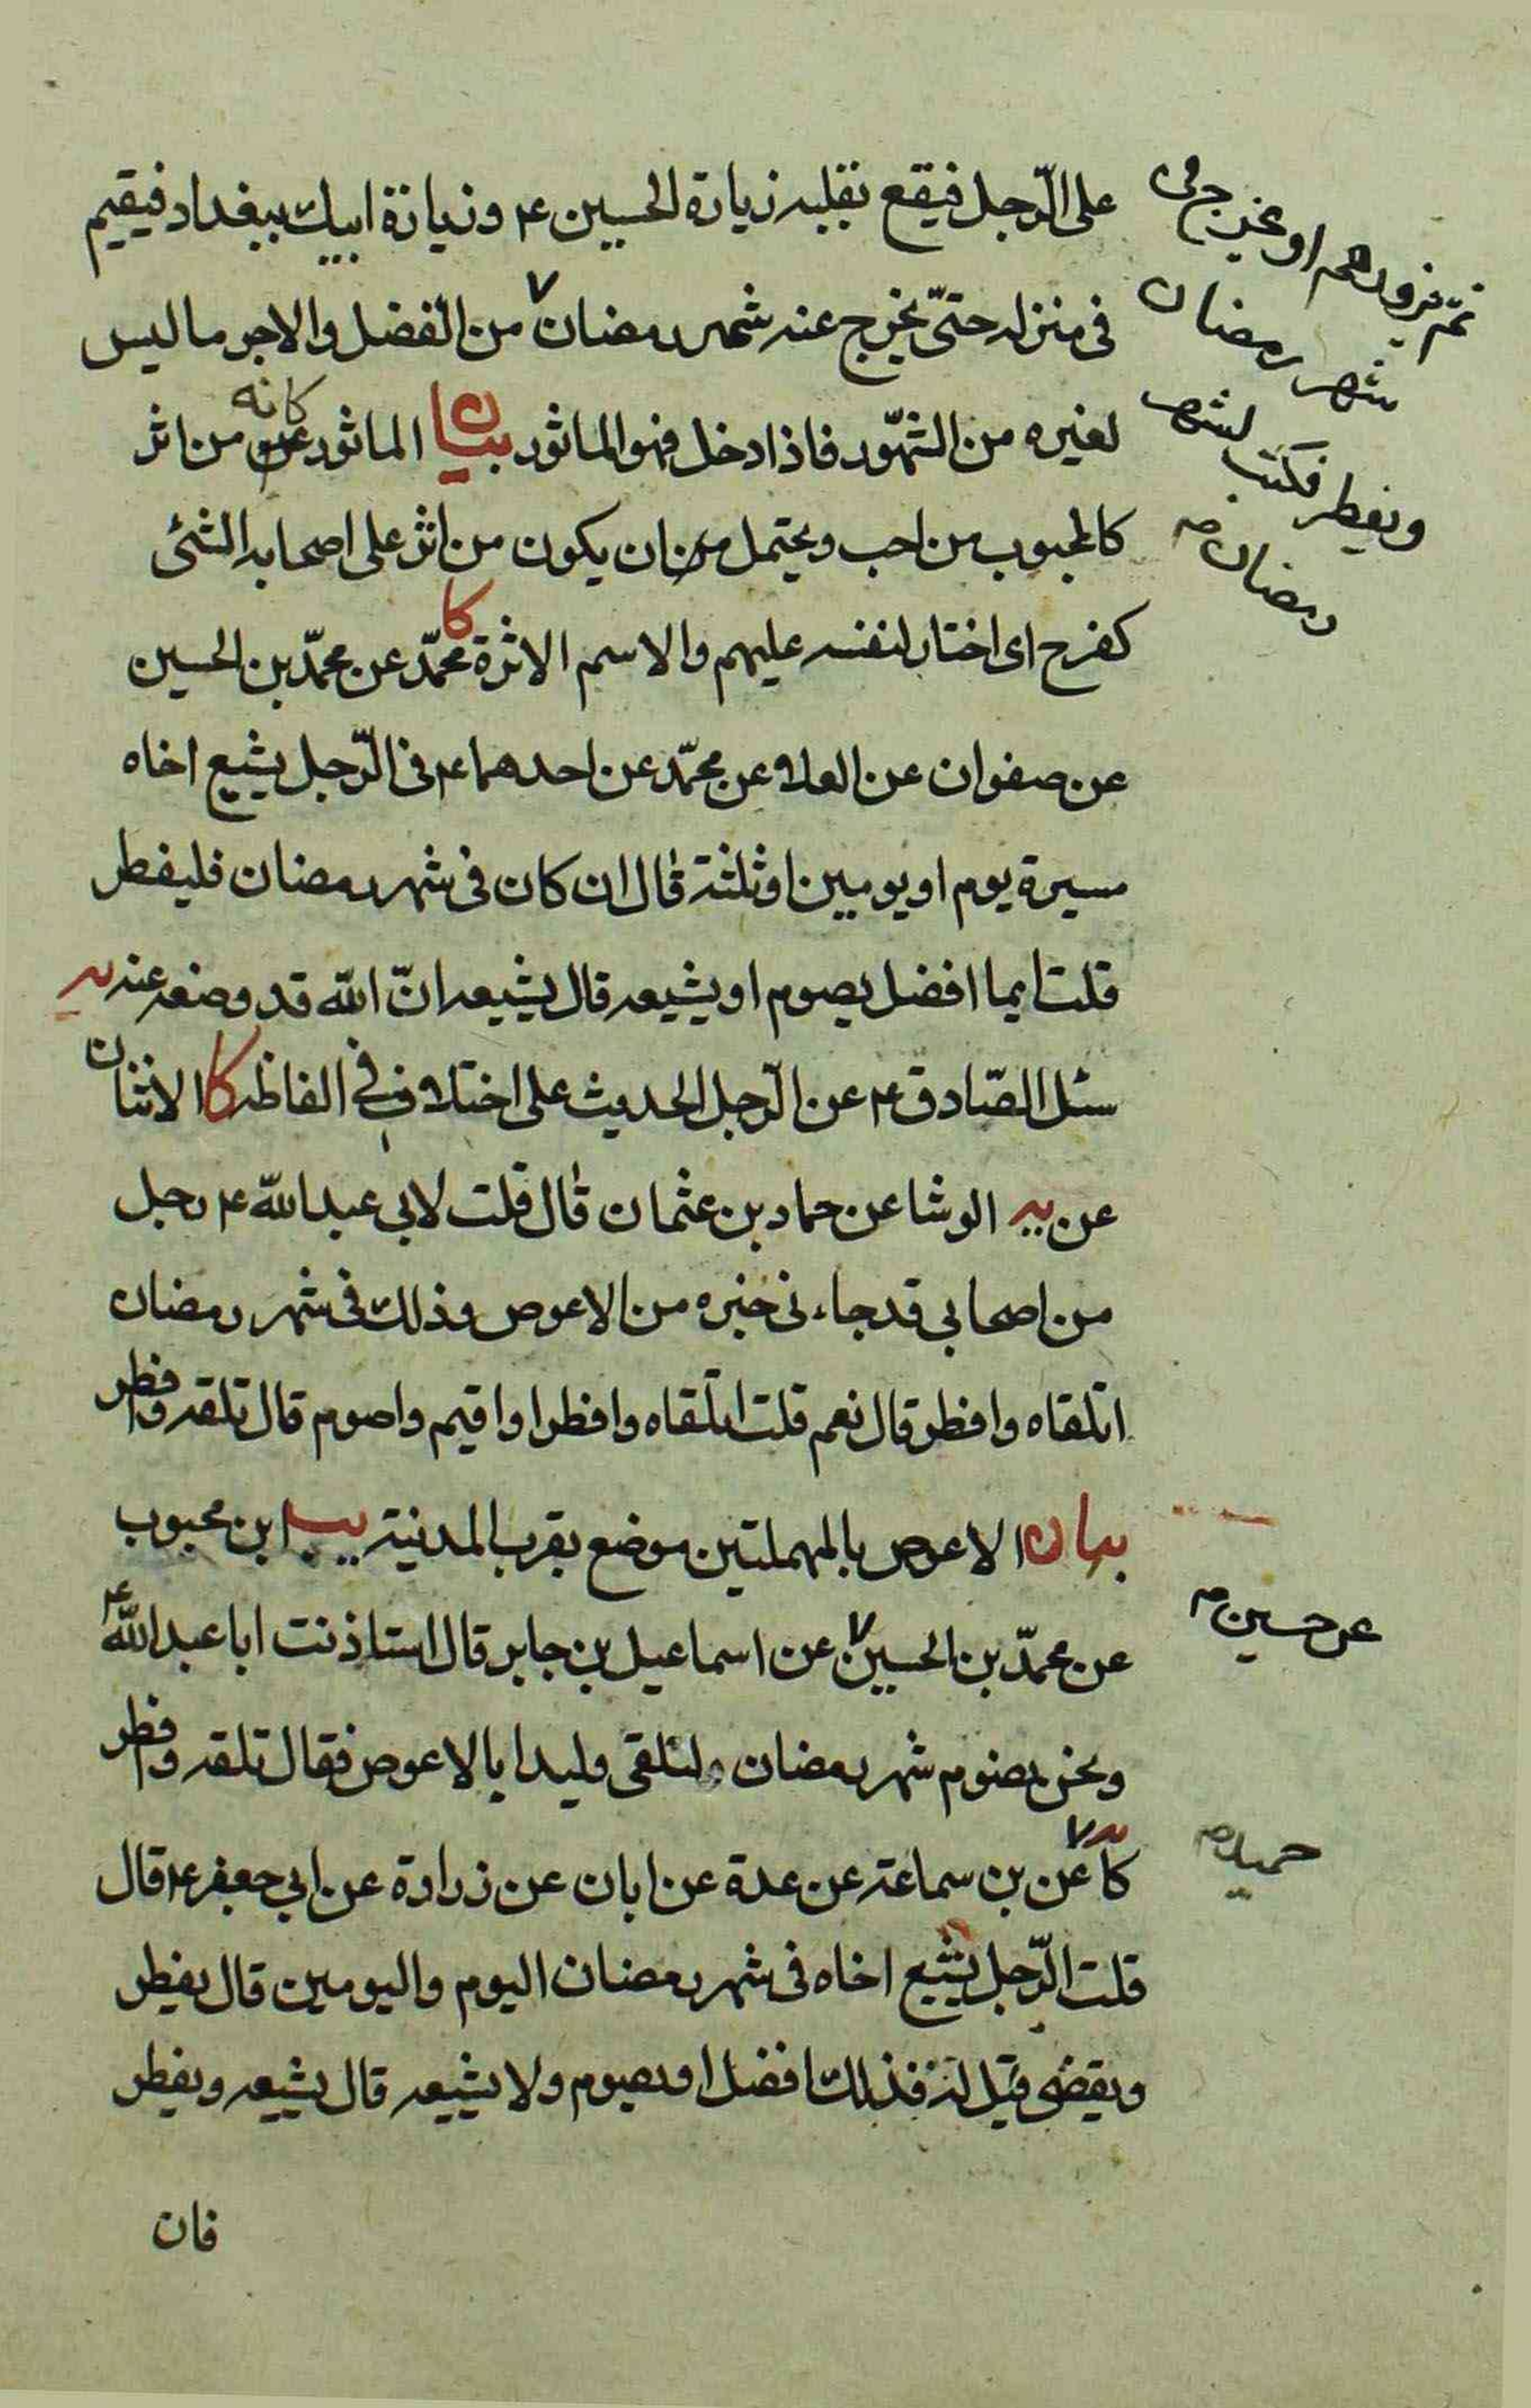 على الرّجل فيقع بقلبه زيارة الحسين ع وزيارة ابيك ببغداد فيقيم
فى منزله حتّى يخرج عنه شهر رمضان ٧ من الفضل والاجر ما ليس
لغيره من الشّهور فاذا دخل فهو الماثور بيان الماثور كانه من اثر
كالمحبوب من احب ويحتمل ان يكون من اثر على اصحابه الشئ
كفرح اى اختار لنفسه عليهم والاسم الاثرة كا محمّد عن محمّد بن الحسين
عن صفوان عن العلا عن محمّد عن احدهما ع فى الرّجل يشيع اخاه
مسيرة يوم او يومين او ثلثة قال ان كان فى شهر رمضان فليفطر
قلت ايما افضل يصوم او يشيعه قال يشيعه انّ الله قد وضعه عنه يه
سئل الصّادق ع عن الرّجل الحديث على اختلاف فى الفاظه كا الاثنان
عن يه الوشا عن حماد بن عثمان قال قلت لابى عبد الله ع رجل
من اصحابى قد جاءنى خبره من الاعوص وذلك فى شهر رمضان
اتلقاه وافطر قال نعم قلت اتلقاه وافطر او اقيم واصوم قال تلقه وافطر
بيان الاعوص بالمهملتين موضع بقرب المدينة يب ابن محبوب
عن محمّد بن الحسين ٧ عن اسماعيل بن جابر قال استاذنت ابا عبد الله ع
ونحن نصوم شهر رمضان لنلقى وليدا بالاعوص فقال تلقه وافطر
كا يه ٧ عن بن سماعة عن عدة عن ابان عن زرارة عن ابى جعفر ع قال
قلت الرّجل يشيع اخاه فى شهر رمضان اليوم واليومين قال يفطر
ويقضى قيل له فذلك افضل او يصوم ولا يشيعه قال يشيعه ويفطر
فان
ثمّ يزورهم او يخرج فى
شهر رمضان
ويفطر فكتب لشهر
رمضان صح
عن حسين صح
حميد صح